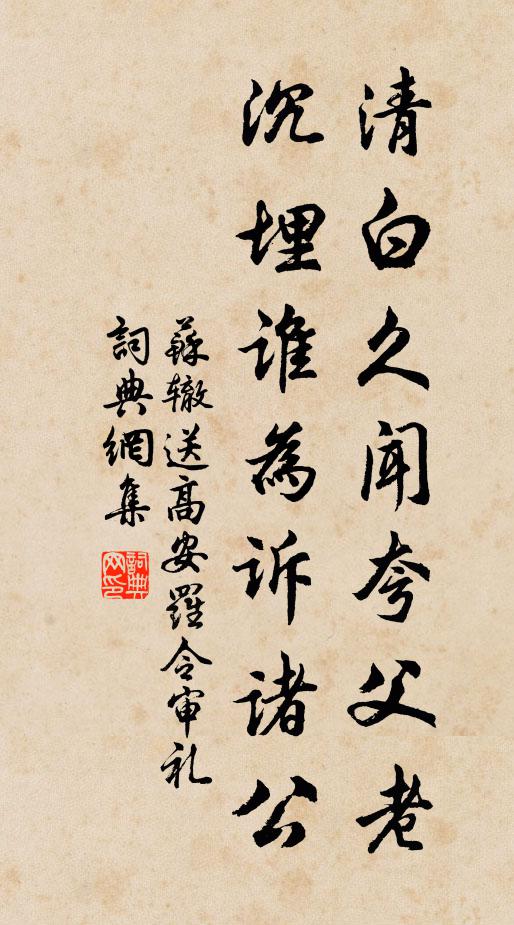 清白久闻夸父老
沉埋谁為诉诸公
蘇辙送高安羅令审礼
詞典網集
詞典网印